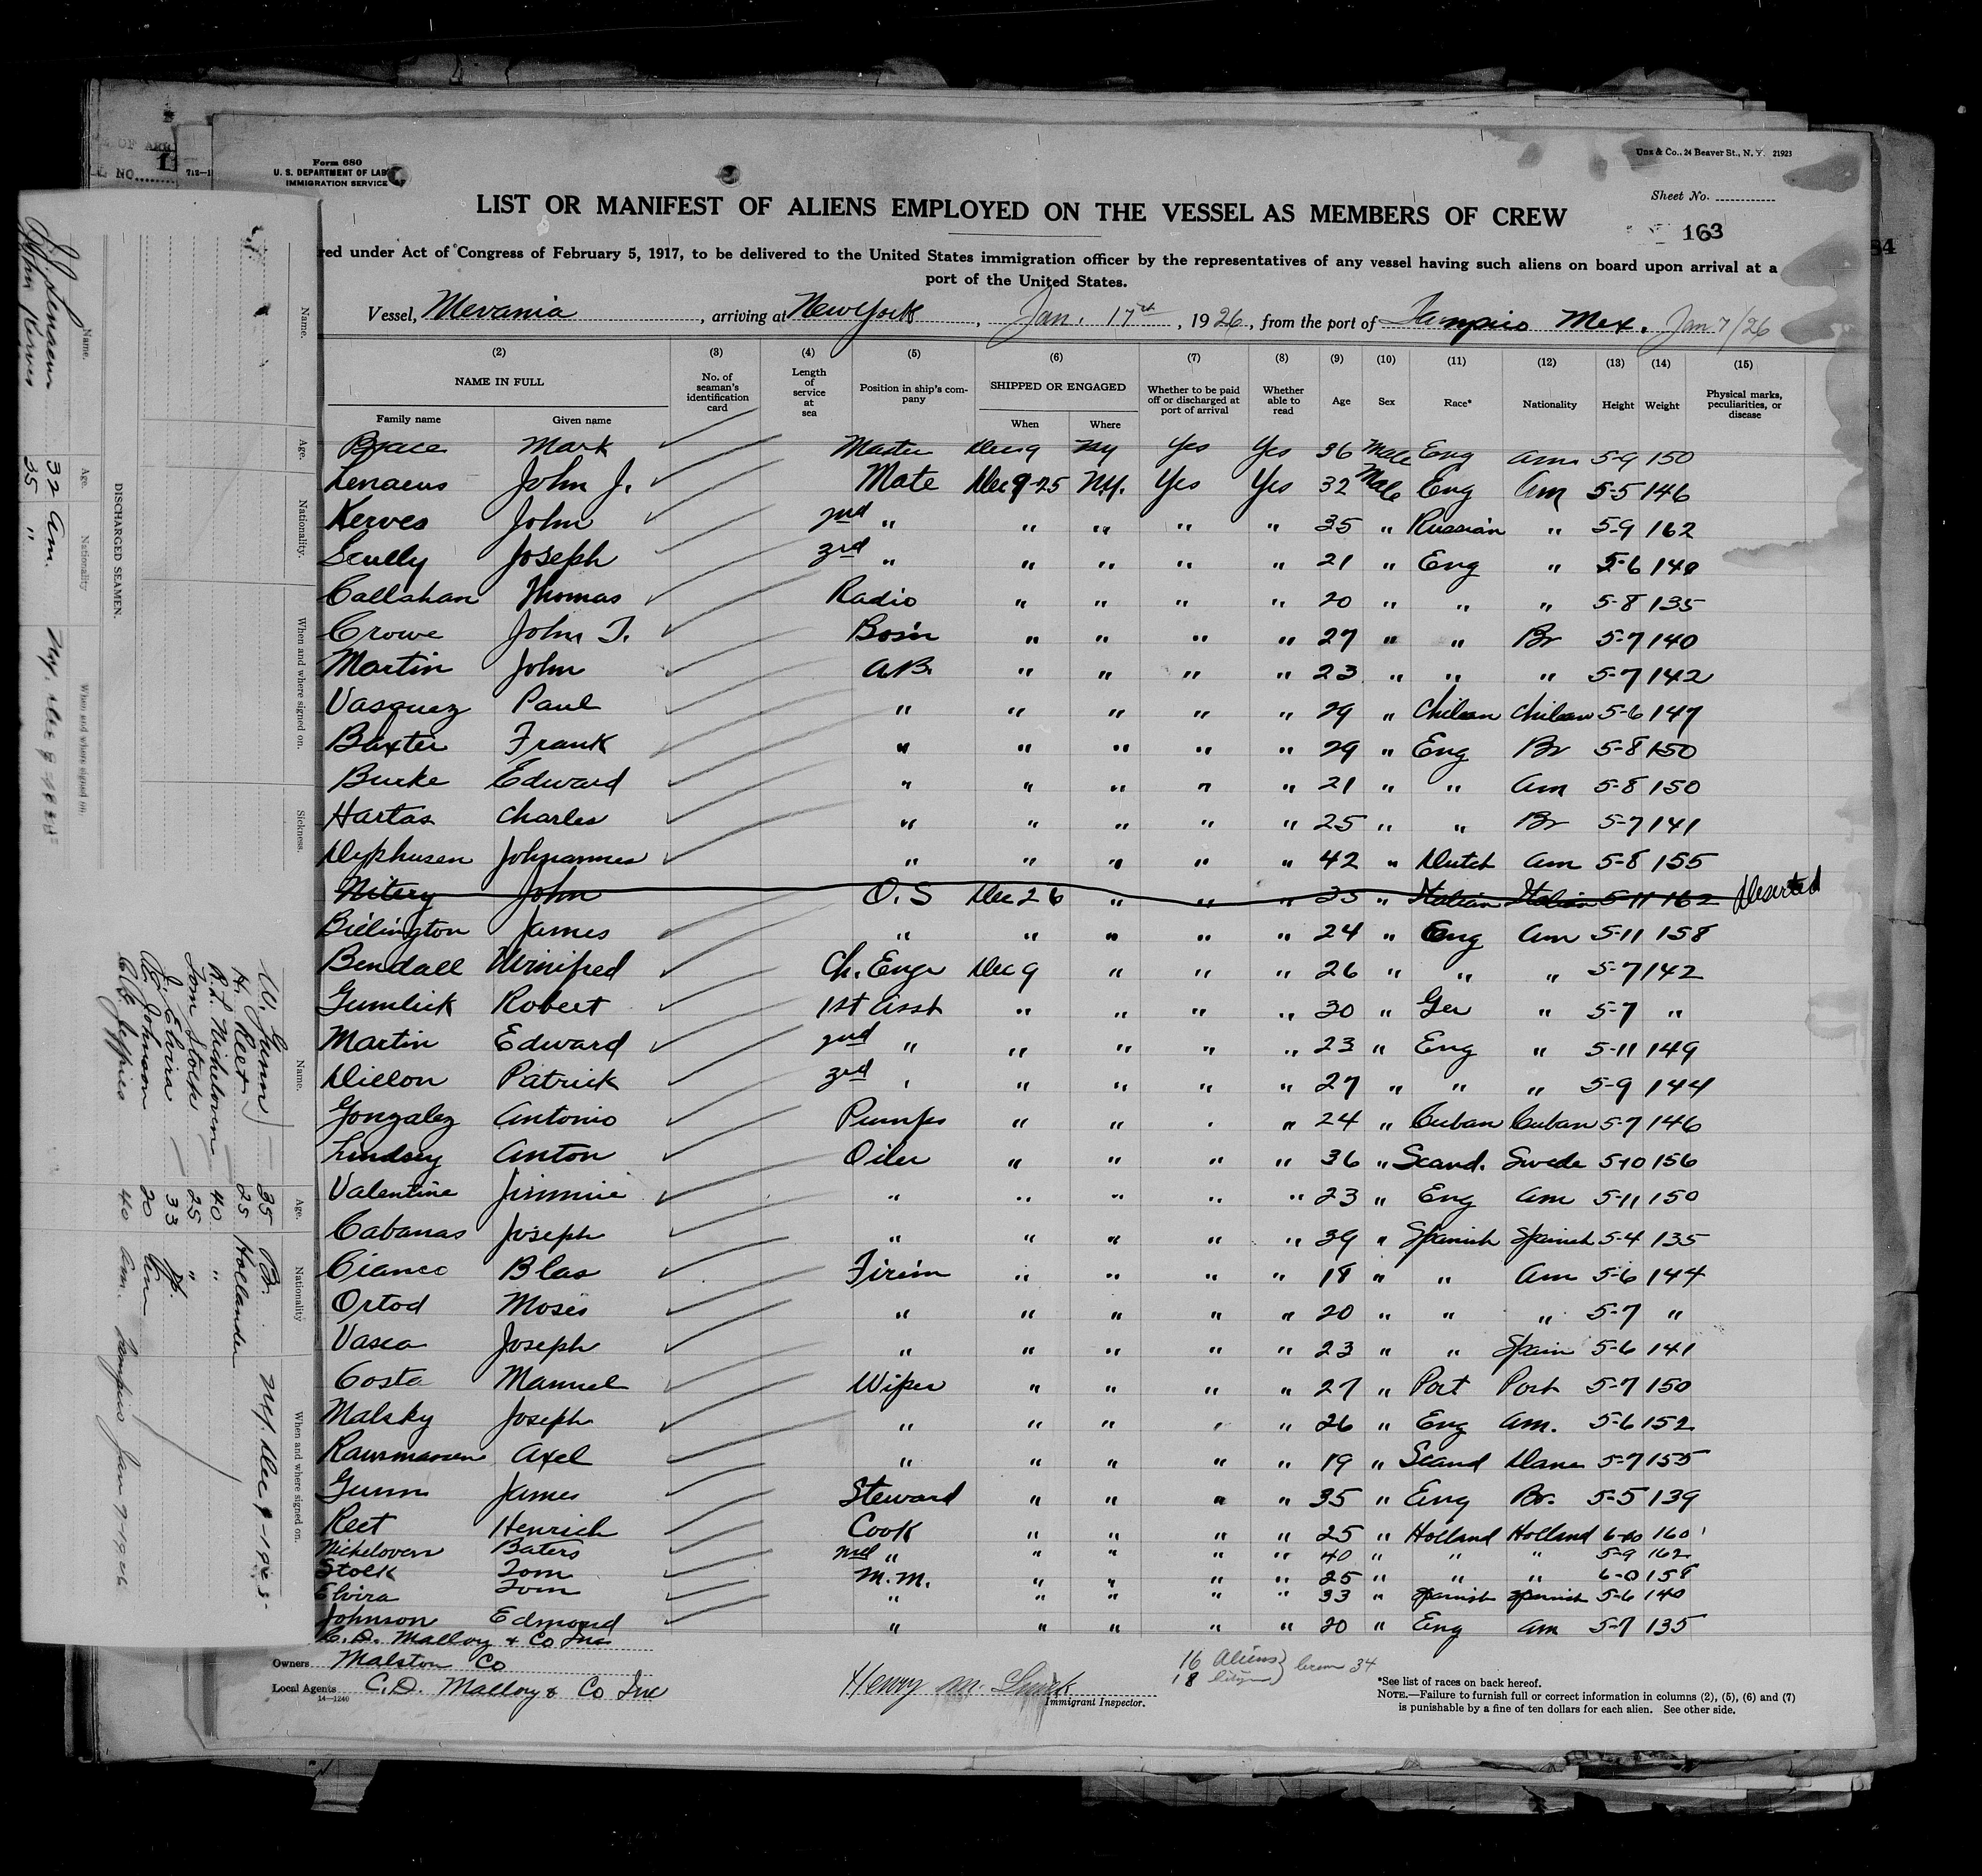 Form 680
U. S. DEPARTMENT OF LAB
IMMIGRATION SERVICE
Unz & Co., 24 Beaver St., N. Y. 21923
Sheet No.
LIST OR MANIFEST OF ALIENS EMPLOYED ON THE VESSEL AS MEMBERS OF CREW
163
red under Act of Congress of February 5, 1917, to be delivered to the United States immigration officer by the representatives of any vessel having such aliens on board upon arrival at a
port of the United States.
Vessel, Mevania, arriving at New York, Jan. 17th, 1926, from the port of Tampico Mex. Jan 7/26
(2) (3) (4) (5) (6) (7) (8) (9) (10) (11) (12) (13) (14) (15)
NAME IN FULL No. of seaman's identification card Length of service at sea Position in ship's company SHIPPED OR ENGAGED Whether to be paid off or discharged at port of arrival Whether able to read Age Sex Race* Nationality Height Weight Physical marks, peculiarities, or disease
Family name Given name When Where
Brace Mark Master Dec 9 NY Yes Yes 36 Male Eng Am 5-9 150
Lenaeus John J. Mate Dec 9-25 N.Y. Yes Yes 32 Male Eng Am 5-5 146
Kerves John 2nd " " " " " 35 " Russian " 5-9 162
Scully Joseph 3rd " " " " " 21 " Eng " 5-6 140
Callahan Thomas Radio " " " " 20 " " " 5-8 135
Crowe John T. Bos'n " " " " 27 " " Br 5-7 140
Martin John A.B. " " " " 23 " " " 5-7 142
Vasquez Paul " " " " " 29 " Chilean Chilean 5-6 147
Baxter Frank " " " " " 29 " Eng Br 5-8 150
Burke Edward " " " " " 21 " " Am 5-8 150
Hartas Charles " " " " " 25 " " Br 5-7 141
Dyphusen Johannes " " " " " 42 " Dutch Am 5-8 155
Nitery John O.S Dec 26 " " " 35 " Italian Italian 5-11 162 Deserted
Billington James " " " " " 24 " Eng Am 5-11 158
Bendall Winifred Ch. Engr Dec 9 " " " 26 " " " 5-7 142
Gumlick Robert 1st Asst " " " " 30 " Ger " 5-7 "
Martin Edward 2nd " " " " " 23 " Eng " 5-11 149
Dillon Patrick 3rd " " " " " 27 " " " 5-9 144
Gonzalez Antonio Pumps " " " " 24 " Cuban Cuban 5-7 146
Lindsey Anton Oiler " " " " 36 " Scand. Swede 5-10 156
Valentine Jimmie " " " " " 23 " Eng Am 5-11 150
Cabanas Joseph " " " " " 39 " Spanish Spanish 5-4 135
Cianco Blas Firem " " " " 18 " " Am 5-6 144
Ortod Moses " " " " " 20 " " " 5-7 "
Vasca Joseph " " " " " 23 " " Spain 5-6 141
Costa Manuel Wiper " " " " 27 " Port Port 5-7 150
Malsky Joseph " " " " " 26 " Eng Am. 5-6 152
Rausmassen Axel " " " " " 19 " Scand Dane 5-7 155
Gunn James Steward " " " " 35 " Eng Br. 5-5 139
Reet Henrich Cook " " " " 25 " Holland Holland 6-00 160
Nickeloven Baters 2nd " " " " " 40 " " " 5-9 162
Stolk Tom M.M. " " " " 25 " " " 6-0 158
Elvira Tom " " " " " 33 " Spanish Spanish 5-6 140
Johnson Edmond " " " " " 20 " Eng Am 5-7 135
C. D. Mallory & Co Inc
Owners Malston Co
Local Agents C. D. Mallory & Co Inc
14-1240
Henry M.
Immigrant Inspector.
16 Aliens
18 Citizens } Crew 34
*See list of races on back hereof.
NOTE.—Failure to furnish full or correct information in columns (2), (5), (6) and (7)
is punishable by a fine of ten dollars for each alien. See other side.
DISCHARGED SEAMEN.
Name. Age. Nationality When and where signed on
J. J. Lenaeus 32 Am. N.Y. Dec 9
John Kerves 35 "
Name. Age. Nationality. When and where signed on. Sickness.
Name. Age. Nationality When and where signed on.
W. Gunn 35 Br. N.Y. Dec 9-1925
H. Reet 25 Hollander
Nickeloven 40 "
Tom Stolk 25 "
J. Elvira 33 Sp.
E. Johnson 20 Am
Jeffries 40 Am. Tampico Jan 7-1926